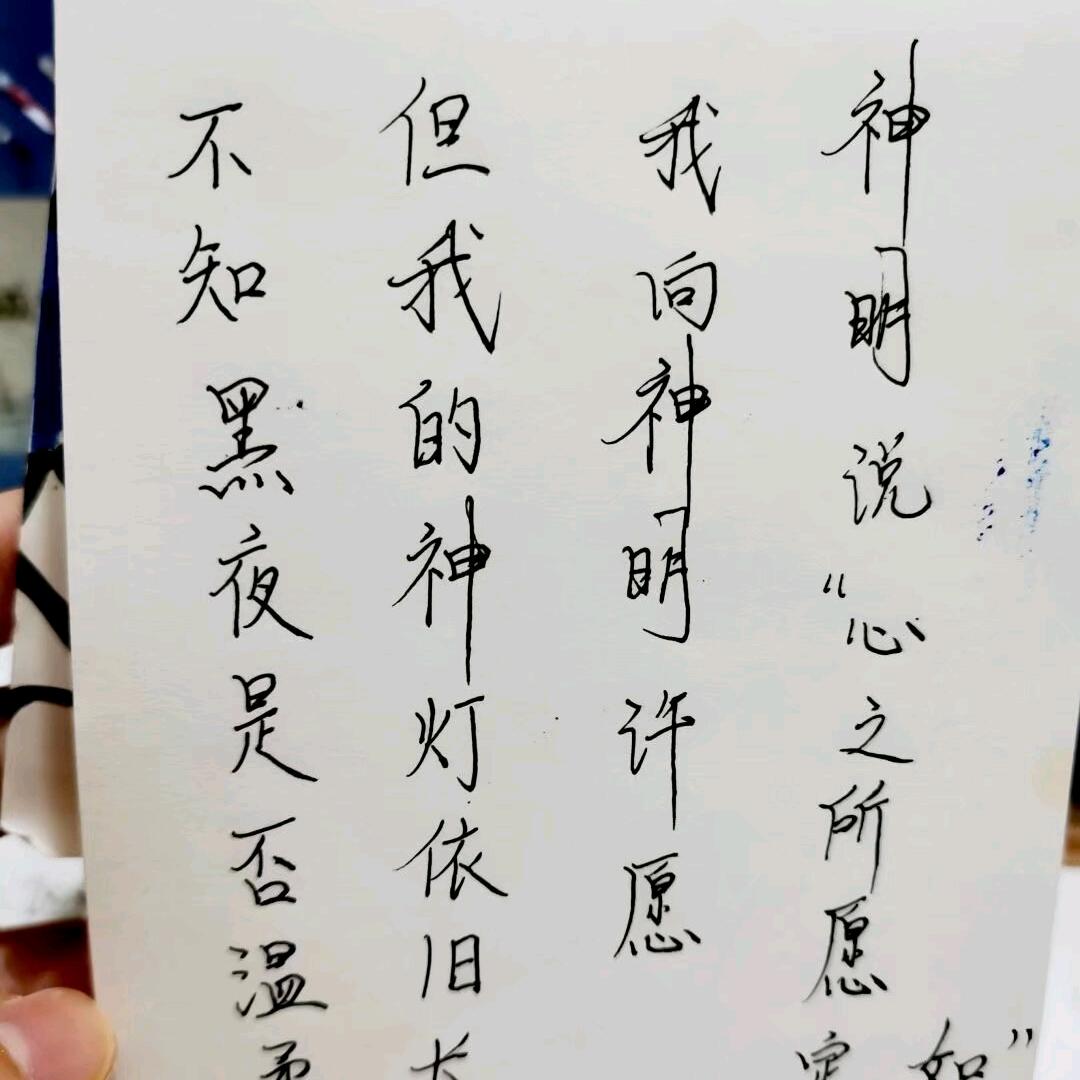 神明说“心之所愿定
如”
我向神明许愿
但我的神灯依旧长
不知黑夜是否温柔